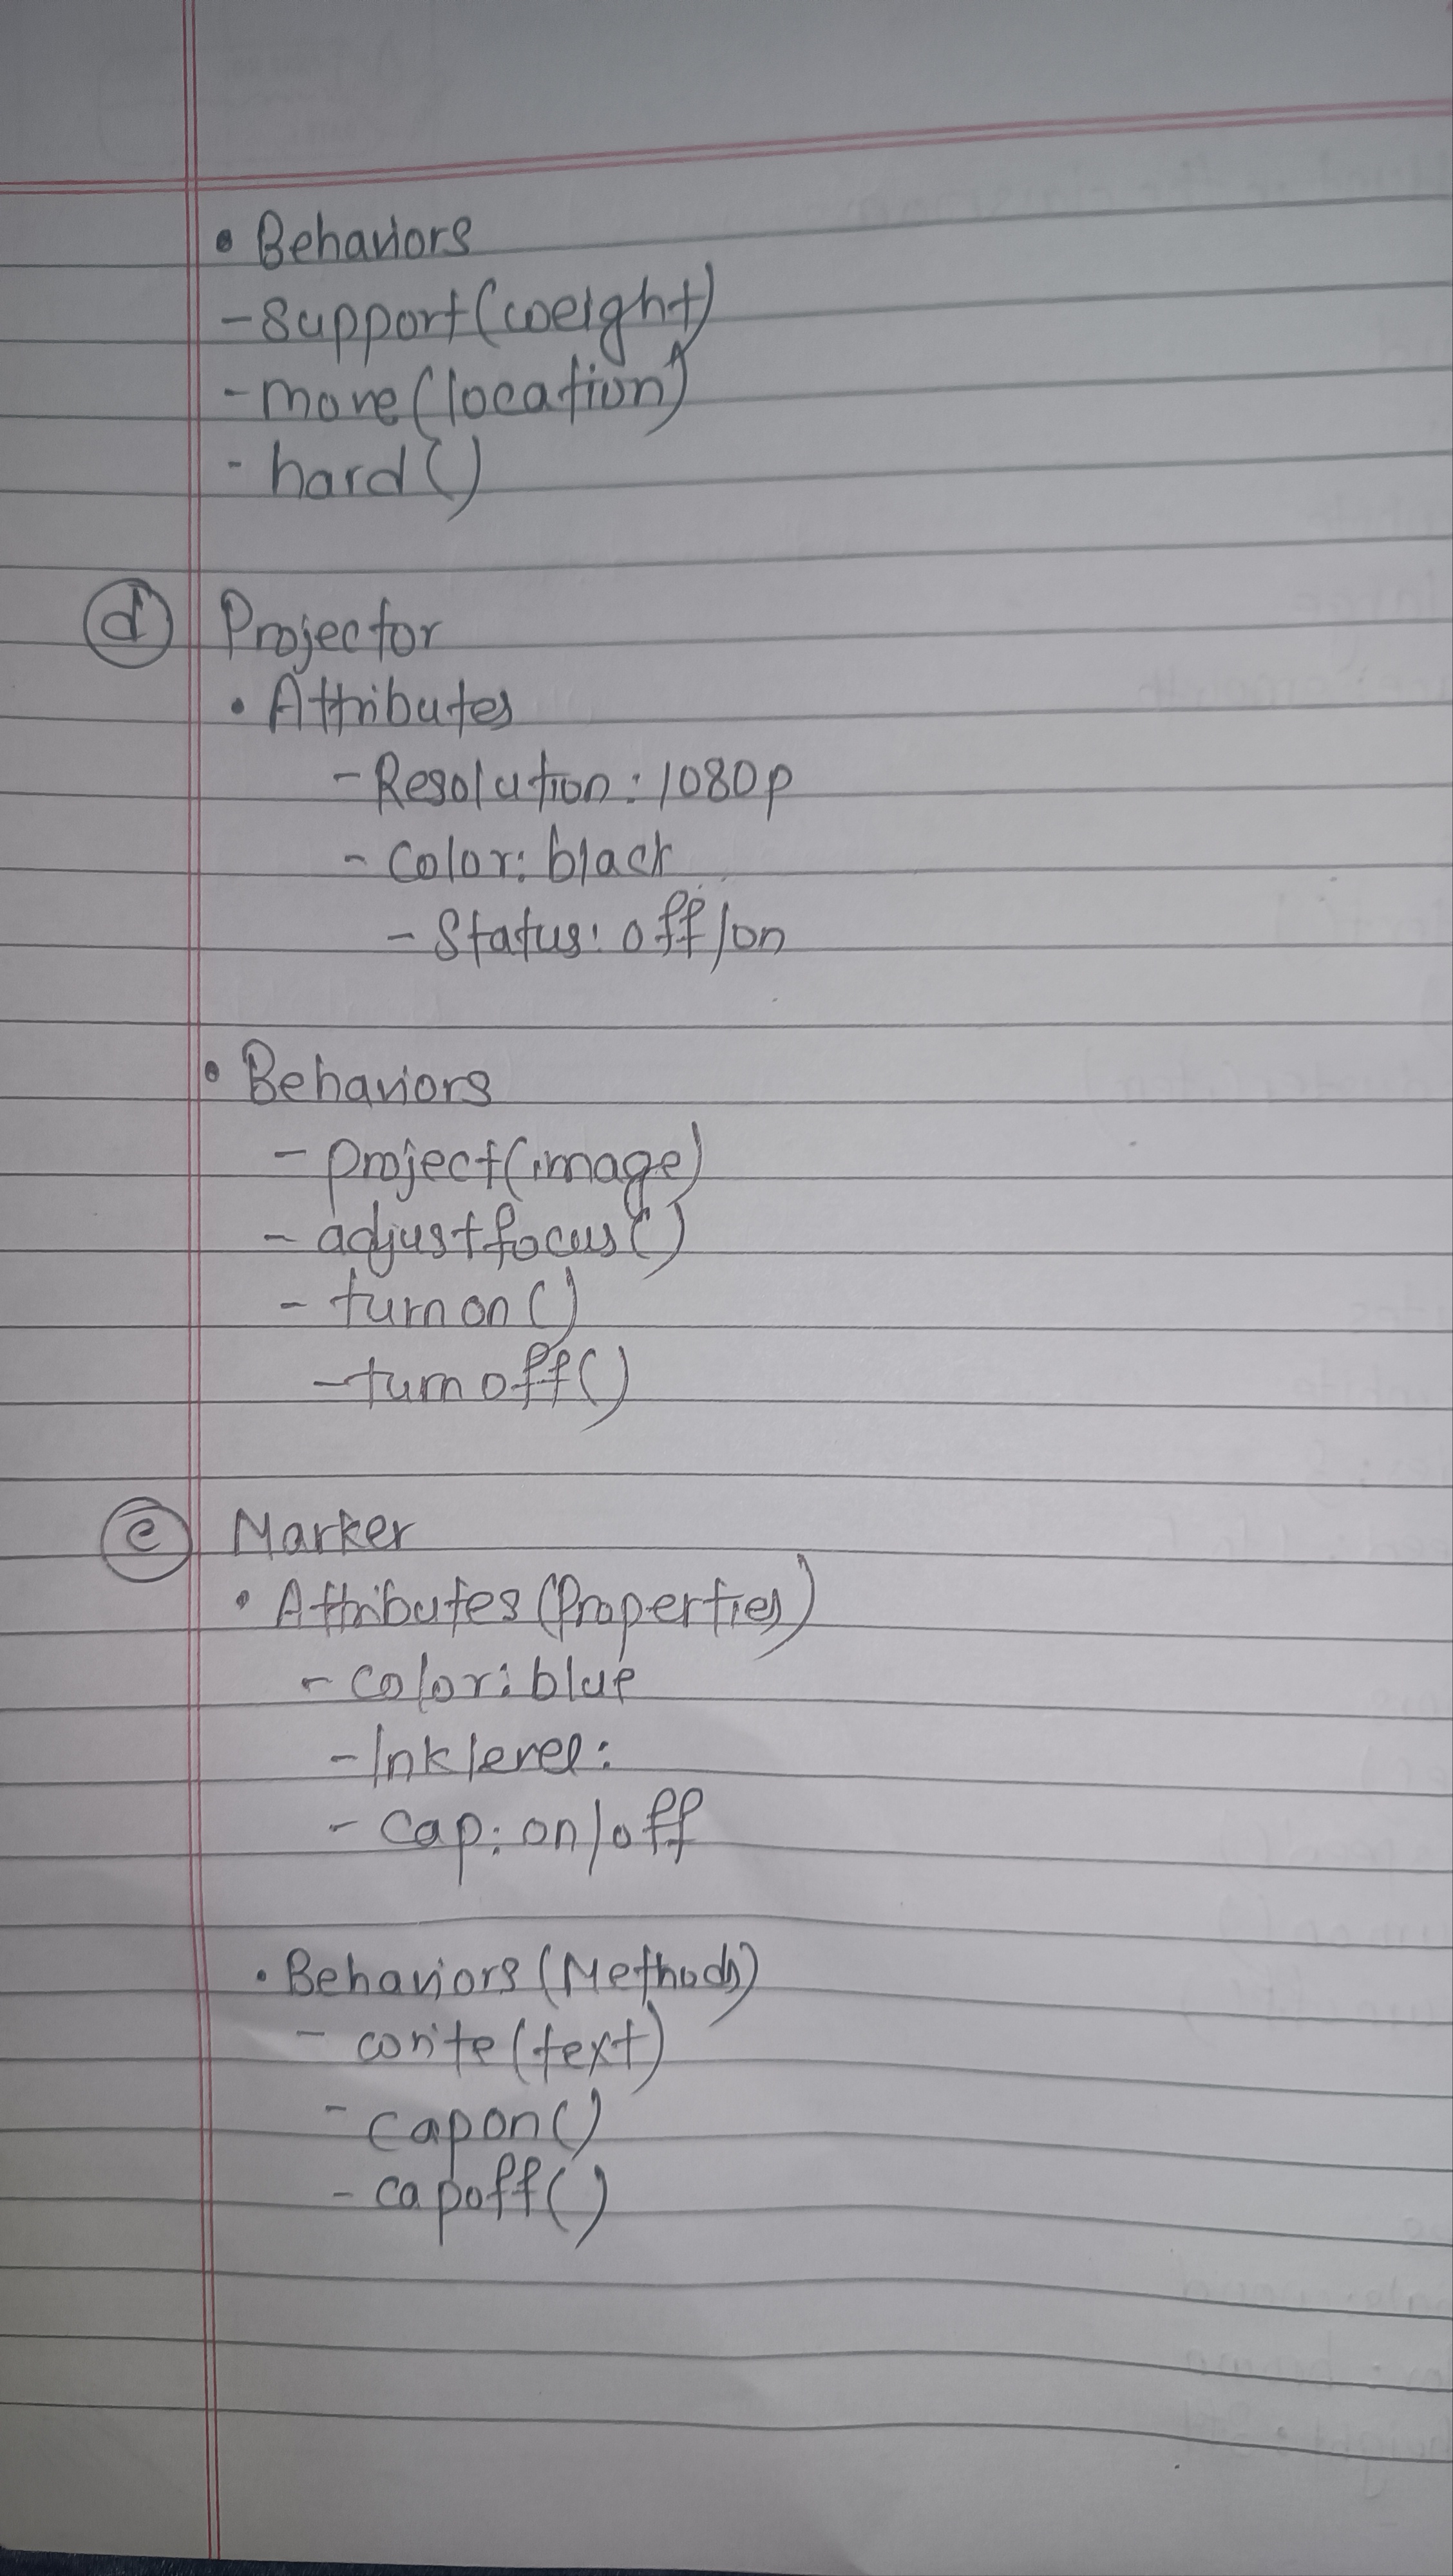 • Behaviors
- support(weight)
- move(location)
- hard()
d Projector
• Attributes
- Resolution: 1080p
- color: black
- Status: off/on
• Behaviors
- project(image)
- adjustfocus()
- turn on()
- turn off()
e Marker
• Attributes (Properties)
- color: blue
- Ink level:
- cap: on/off
• Behaviors (Methods)
- write(text)
- capon()
- capoff()